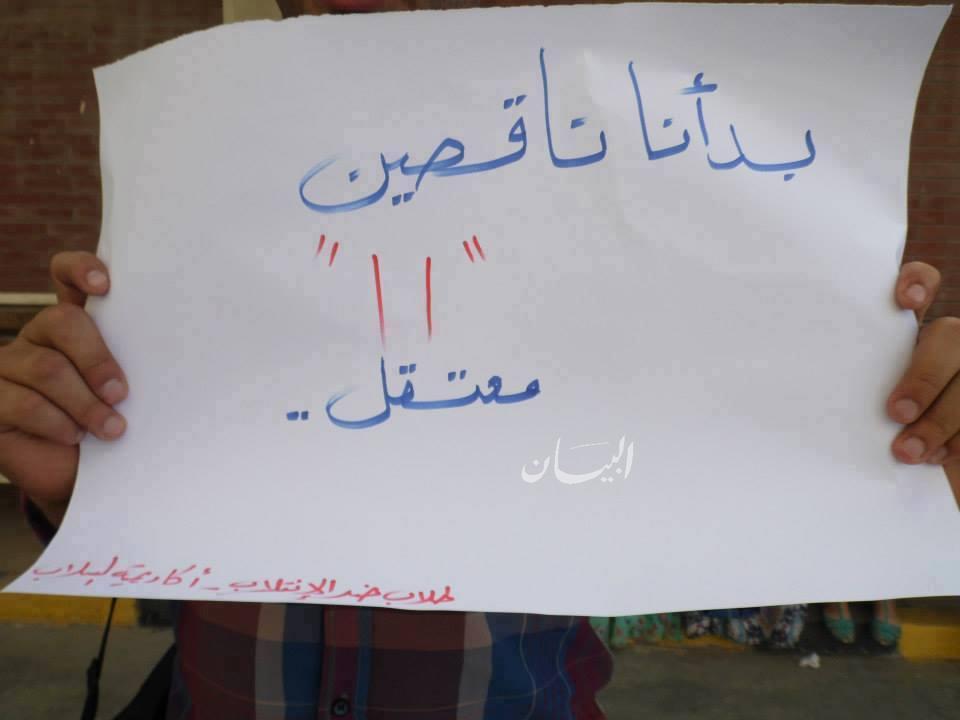 بدأنا ناقصين
"١١"
معتقل ..
البيان
طلاب ضد الإنقلاب - أكاديمية لبلاب